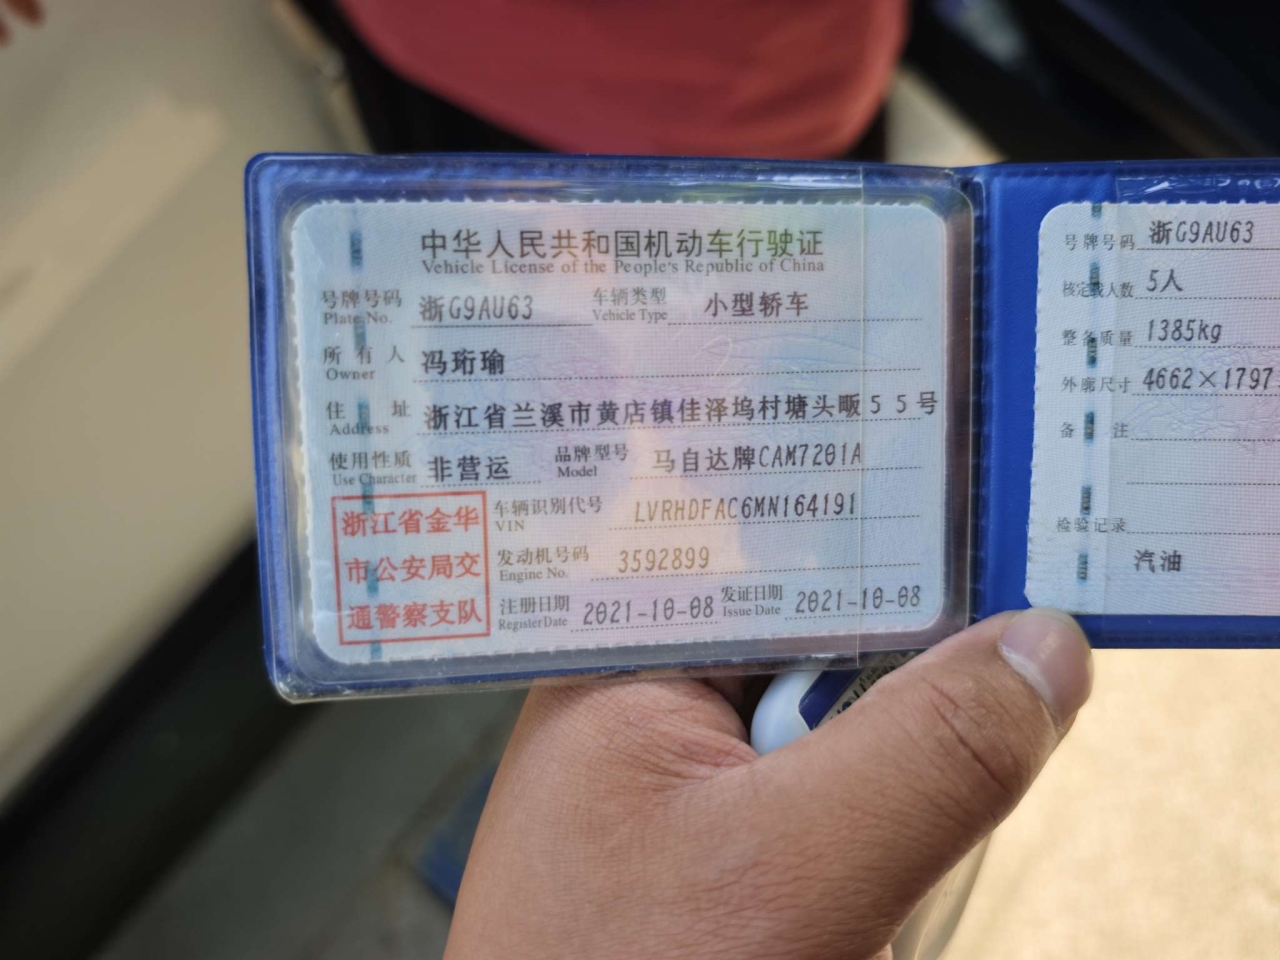 中华人民共和国机动车行驶证
Vehicle License of the People's Republic of China
号牌号码 浙G9AU63 车辆类型 小型轿车
Plate No. Vehicle Type
所有人 冯珩瑜
Owner
住址 浙江省兰溪市黄店镇佳泽坞村塘头畈55号
Address
使用性质 非营运 品牌型号 马自达牌CAM7201A
Use Character Model
车辆识别代号 LVRHDFAC6MN164191
VIN
发动机号码 3592899
Engine No.
注册日期 2021-10-08 发证日期 2021-10-08
Register Date Issue Date
浙江省金华
市公安局交
通警察支队
号牌号码 浙G9AU63
核定载人数 5人
整备质量 1385kg
外廓尺寸 4662×1797
备注
检验记录
汽油